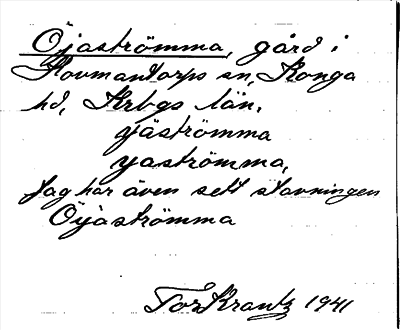 Öjaströmma, gård i
Hovmantorps sn, Konga
hd, Krbgs län.
gjäströmma
yaströmma,
Jag har även sett stavningen
Öijaströmma
Tor Krantz 1941